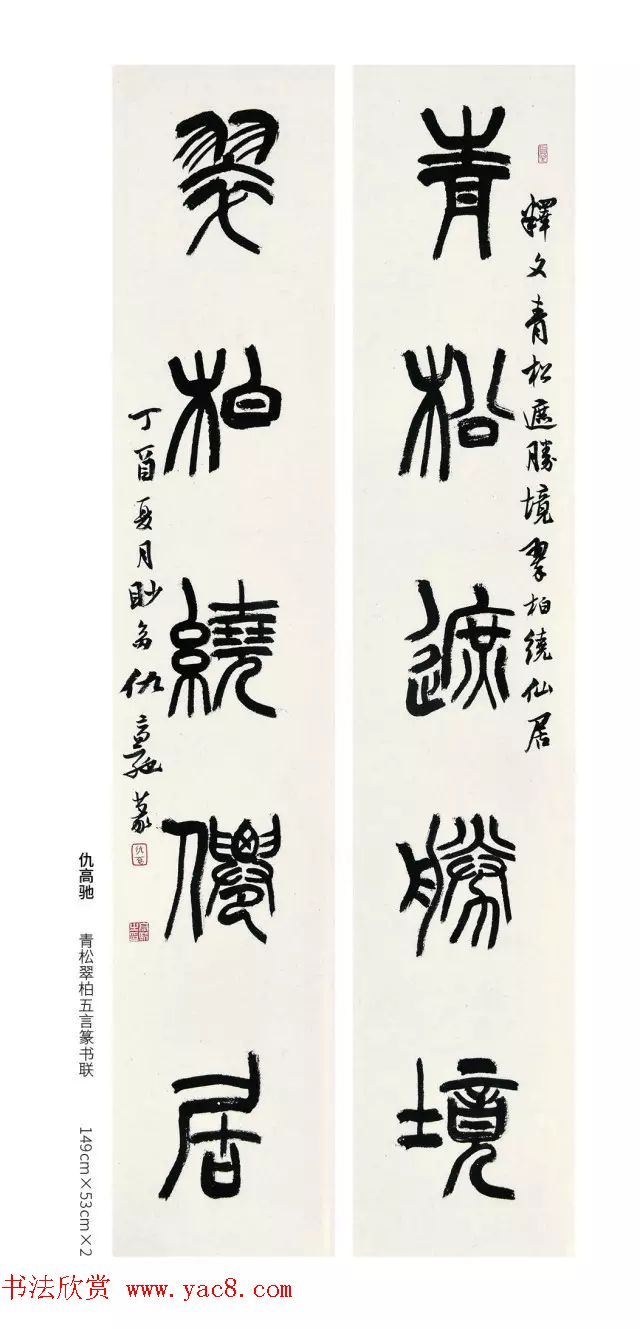 釋文青松遮勝境翠柏繞仙居
青松遮勝境
翠柏繞僊居
丁酉夏月仇高馳篆
仇高驰 青松翠柏五言篆书联 149cm×53cm×2
书法欣赏 www.yac8.com